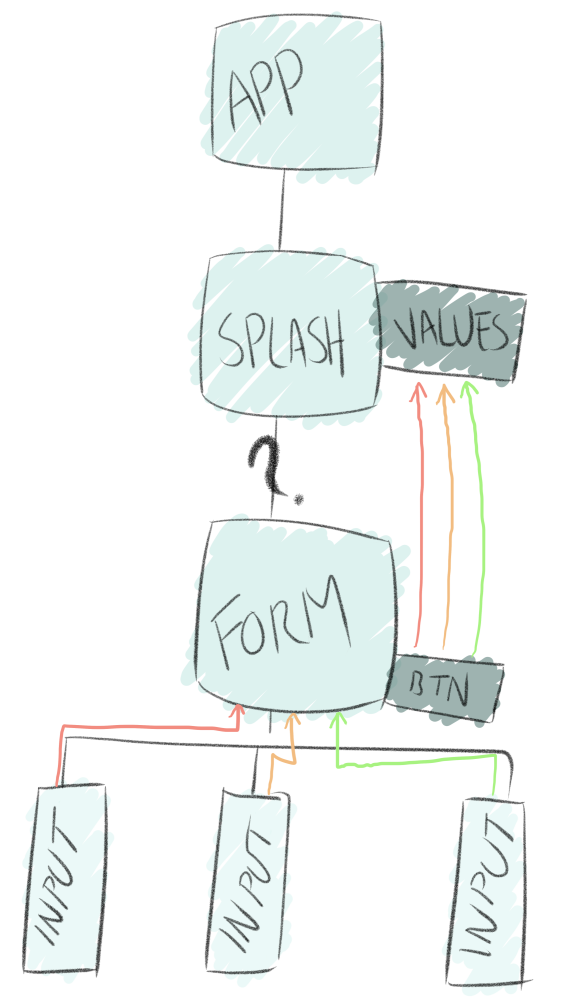 APP
SPLASH
VALUES
?
FORM
BTN
INPUT
INPUT
INPUT